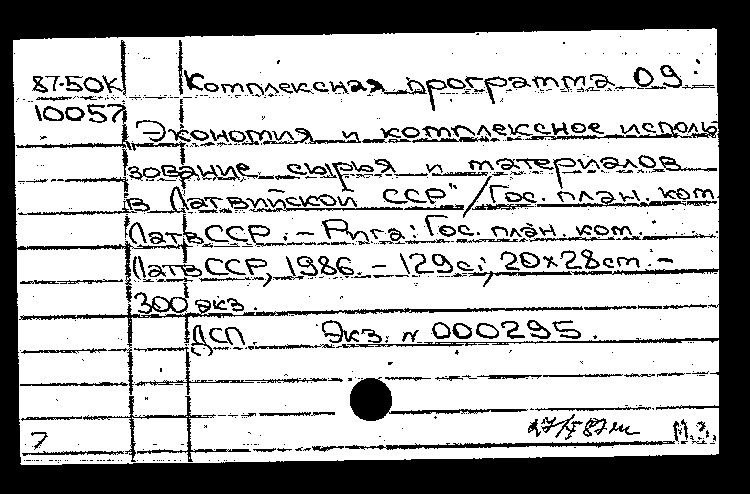 87-50К Комплексная программа 09:
10057
"Экономия и комплексное исполь
зование сырья и материалов
в Латвийской ССР" / Гос. план. ком.
ЛатвССР. – Рига: Гос. план. ком.
ЛатвССР, 1986. – 129с.; 20х28см. –
300 экз.
ДСП. Экз. № 000295.
М.З.
7